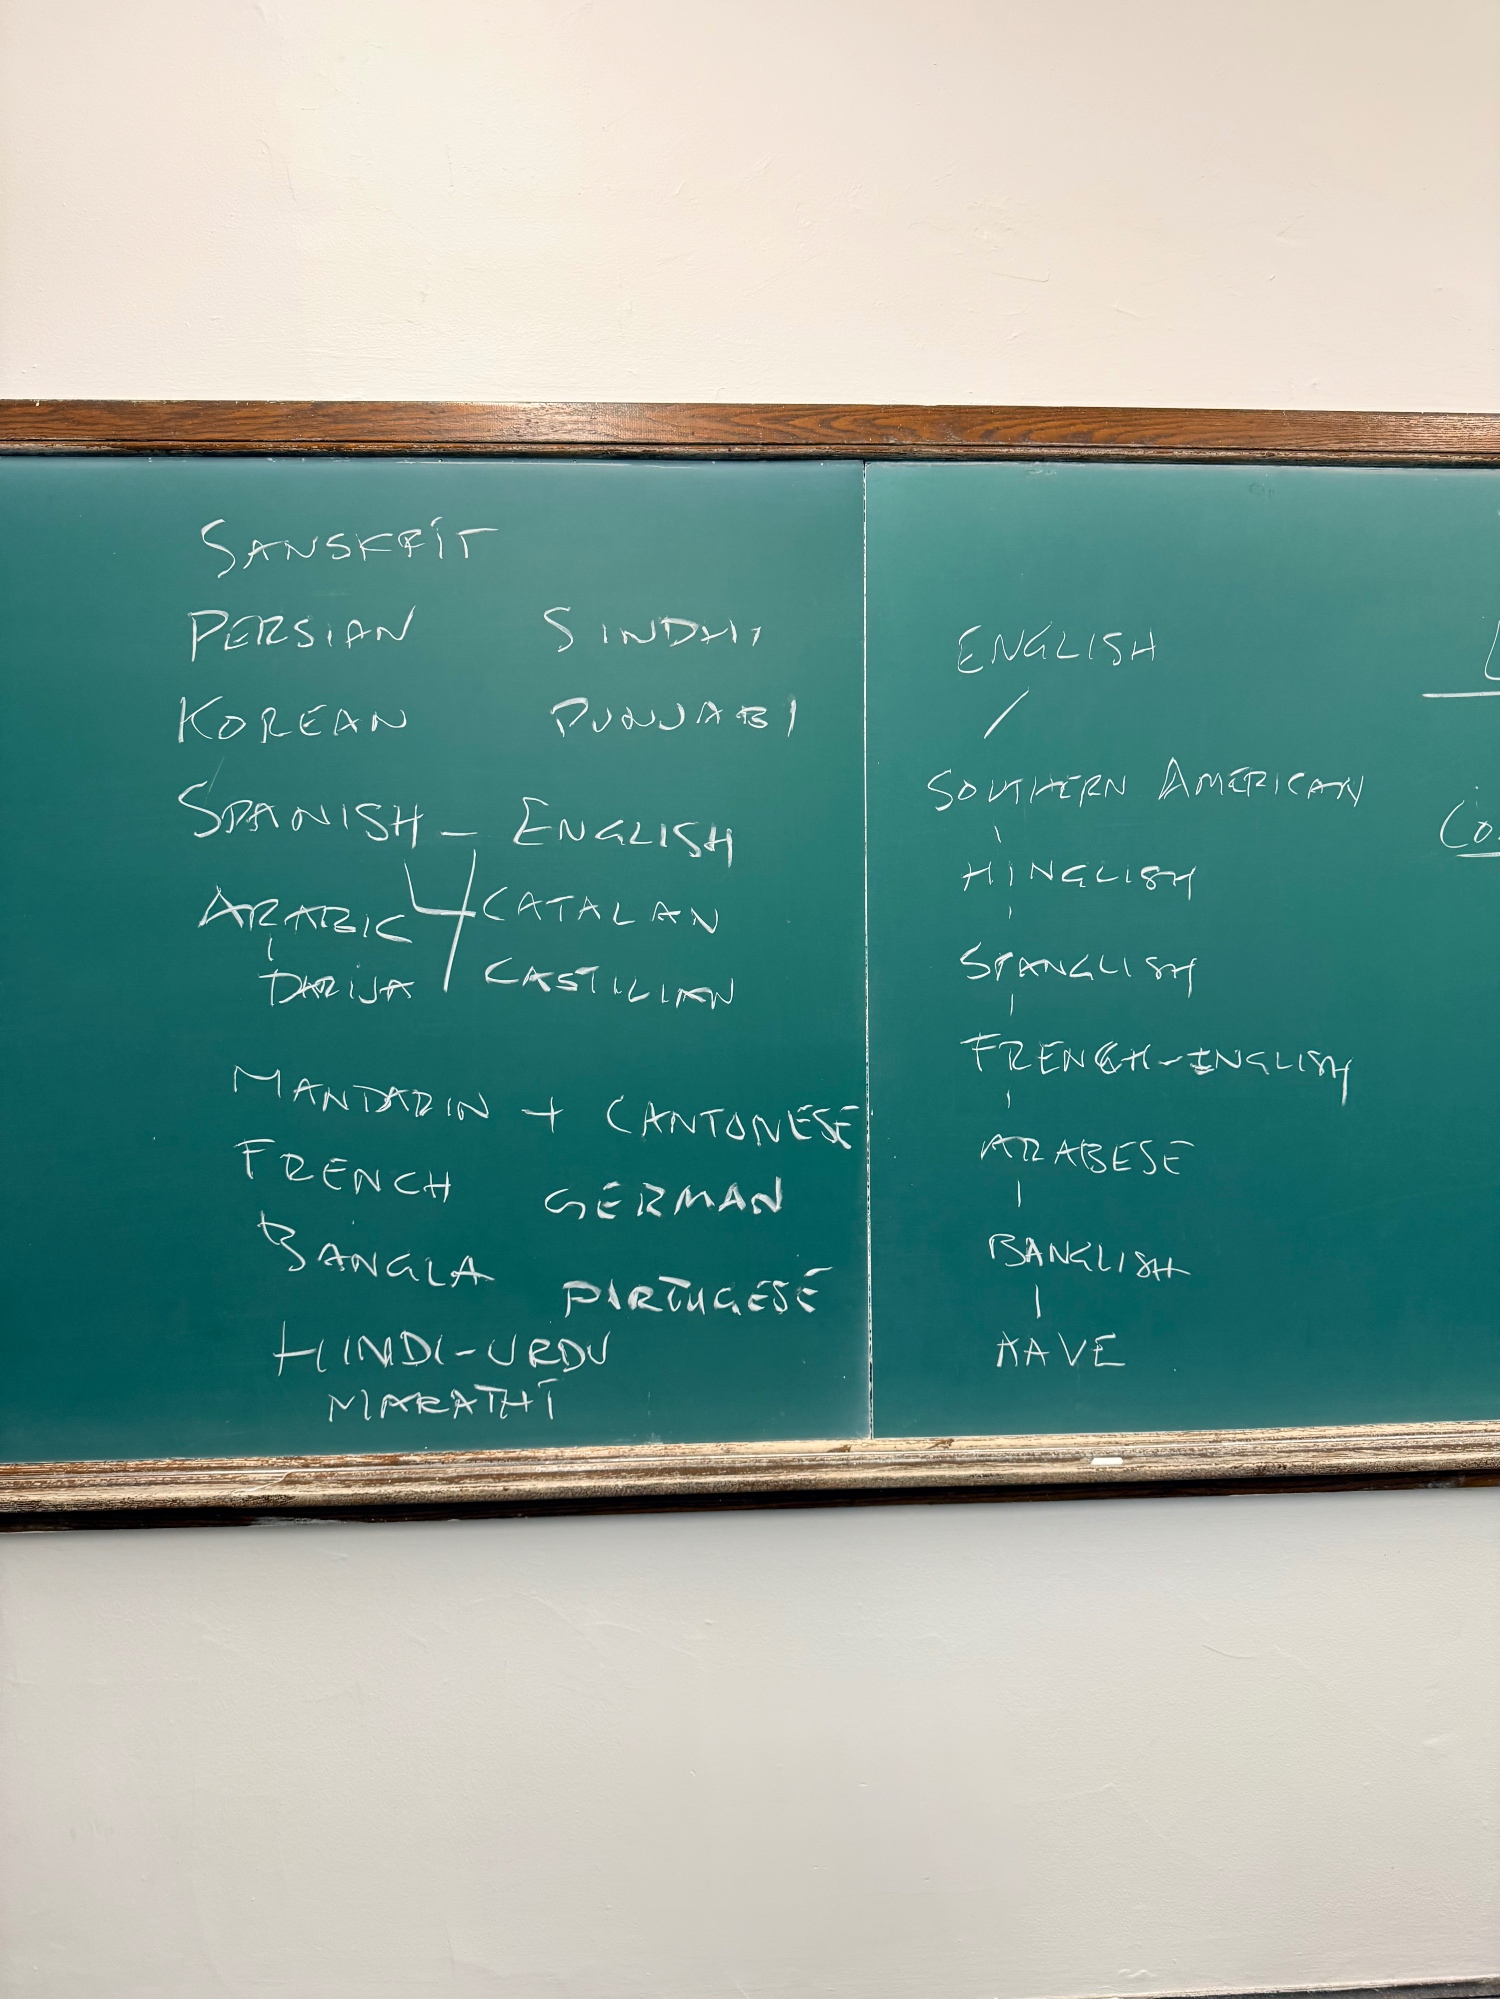 SANSKRIT
PERSIAN SINDHI
KOREAN PUNJABI
SPANISH - ENGLISH
ARABIC CATALAN
DARIJA CASTILIAN
MANDARIN + CANTONESE
FRENCH GERMAN
BANGLA PORTUGESE
HINDI-URDU
MARATHI
ENGLISH
SOUTHERN AMERICAN
HINGLISH
SPANGLISH
FRENCH-ENGLISH
ARABESE
BANGLISH
AAVE